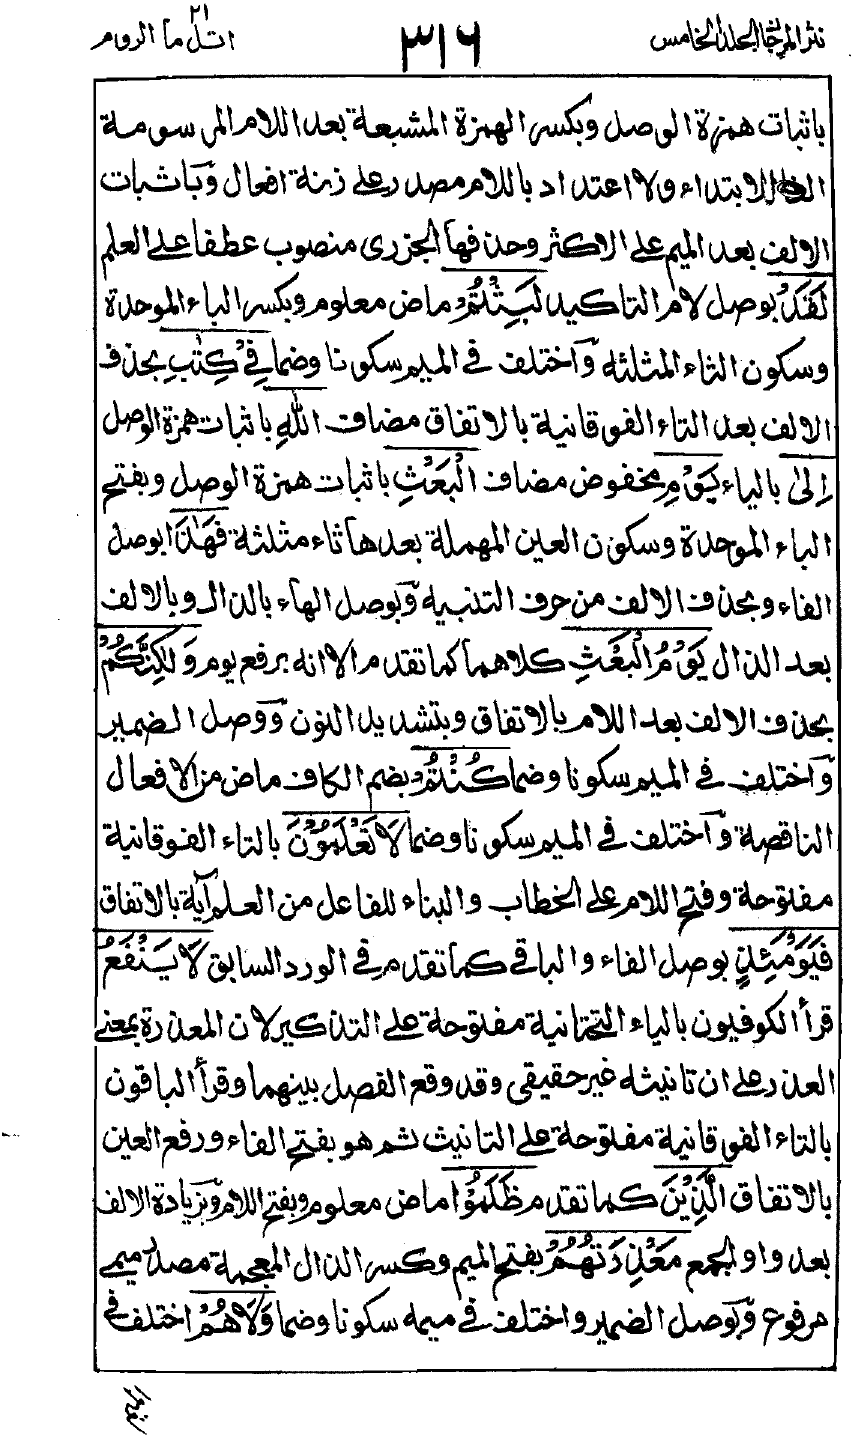 نثر المرجان الجلد الخامس
٣١٦
٢١
اتل ما الروم
باثبات همزة الوصل وبكسر الهمزة المشبعة بعد اللام المرسومة
للابتداء ولا اعتداد باللام مصدر على زنة افعال وَباثبات
الالف بعد الميم على الاكثر وحذفها الجزرى منصوب عطفا على العلم
لَقَدْ بوصل لام التاكيد لَبِثْتُمْ ماض معلوم وبكسر الباء الموحدة
وسكون الثاء المثلثة وَاختلف في الميم سكونا وضما فِيْ كِتٰبِ بحذف
الالف بعد التاء الفوقانية بالاتفاق مضاف اللّٰهِ باثبات همزة الوصل
اِلىٰ بالياء يَوْمِ مخفوض مضاف الْبَعْثِ باثبات همزة الوصل وبفتح
الباء الموحدة وسكون العين المهملة بعدها ثاء مثلثة فَهٰذَا بوصل
الفاء وبحذف الالف من حرف التنبيه وَبوصل الهاء بالذال وبالالف
بعد الذال يَوْمُ الْبَعْثِ كلاهما كما تقدم الا انه برفع يوم وَلٰكِنَّكُمْ
بحذف الالف بعد اللام بالاتفاق وبتشديد النون وَوصل الضمير
وَاختلف في الميم سكونا وضما كُنْتُمْ بضم الكاف ماض من الافعال
الناقصة وَاختلف في الميم سكونا وضما لَا تَعْلَمُوْنَ بالتاء الفوقانية
مفتوحة وفتح اللام على الخطاب والبناء للفاعل من العلم اٰية بالاتفاق
فَيَوْمَئِذٍ بوصل الفاء والباقي كما تقدم في الورد السابق لَا يَنْفَعُ
قرأ الكوفيون بالياء التحتانية مفتوحة على التذكير لان المعذرة بمعنى
العذر على ان تانيثه غير حقيقى وقد وقع الفصل بينهما وقرأ الباقون
بالتاء الفوقانية مفتوحة على التانيث ثم هو بفتح الفاء ورفع العين
بالاتفاق الَّذِيْنَ كما تقدم ظَلَمُوْا ماض معلوم وبفتح اللام وَبزيادة الالف
بعد واو الجمع مَعْذِرَتُهُمْ بفتح الميم وكسر الذال المعجمة مصدر ميمي
مرفوع وَبوصل الضمير واختلف في ميمه سكونا وضما وَلَا هُمْ اختلف في